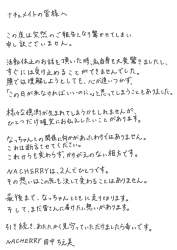 ナチュメイトの皆様へ
この度は突然のご報告となり驚かせてしまい
申し訳ございません。
活動休止のお話を頂いた時、私自身も大変驚きましたし
すぐには受け止めることができませんでした。
頭では理解しようとしても、心が追いつかず、
「この日が来なければいいのに」と思ってしまうこともありました。
様々な憶測が生まれてしまうかもしれませんが、
ひとつだけ確実にお伝えしたいことがあります。
なっちゃんとの関係に何かがあったわけではありません。
これは断言させてください。
これからも変わらず、かけがえのない相方です。
NACHERRYは、2人でひとつです。
その思いはこの先も決して変わることはありません。
最後まで、なっちゃんとともに走りぬきます。
そして、また皆さんに届けたい想いがあります。
引き続き、あたたかく見守っていただけましたら幸いです。
NACHERRY 田中ちえ美